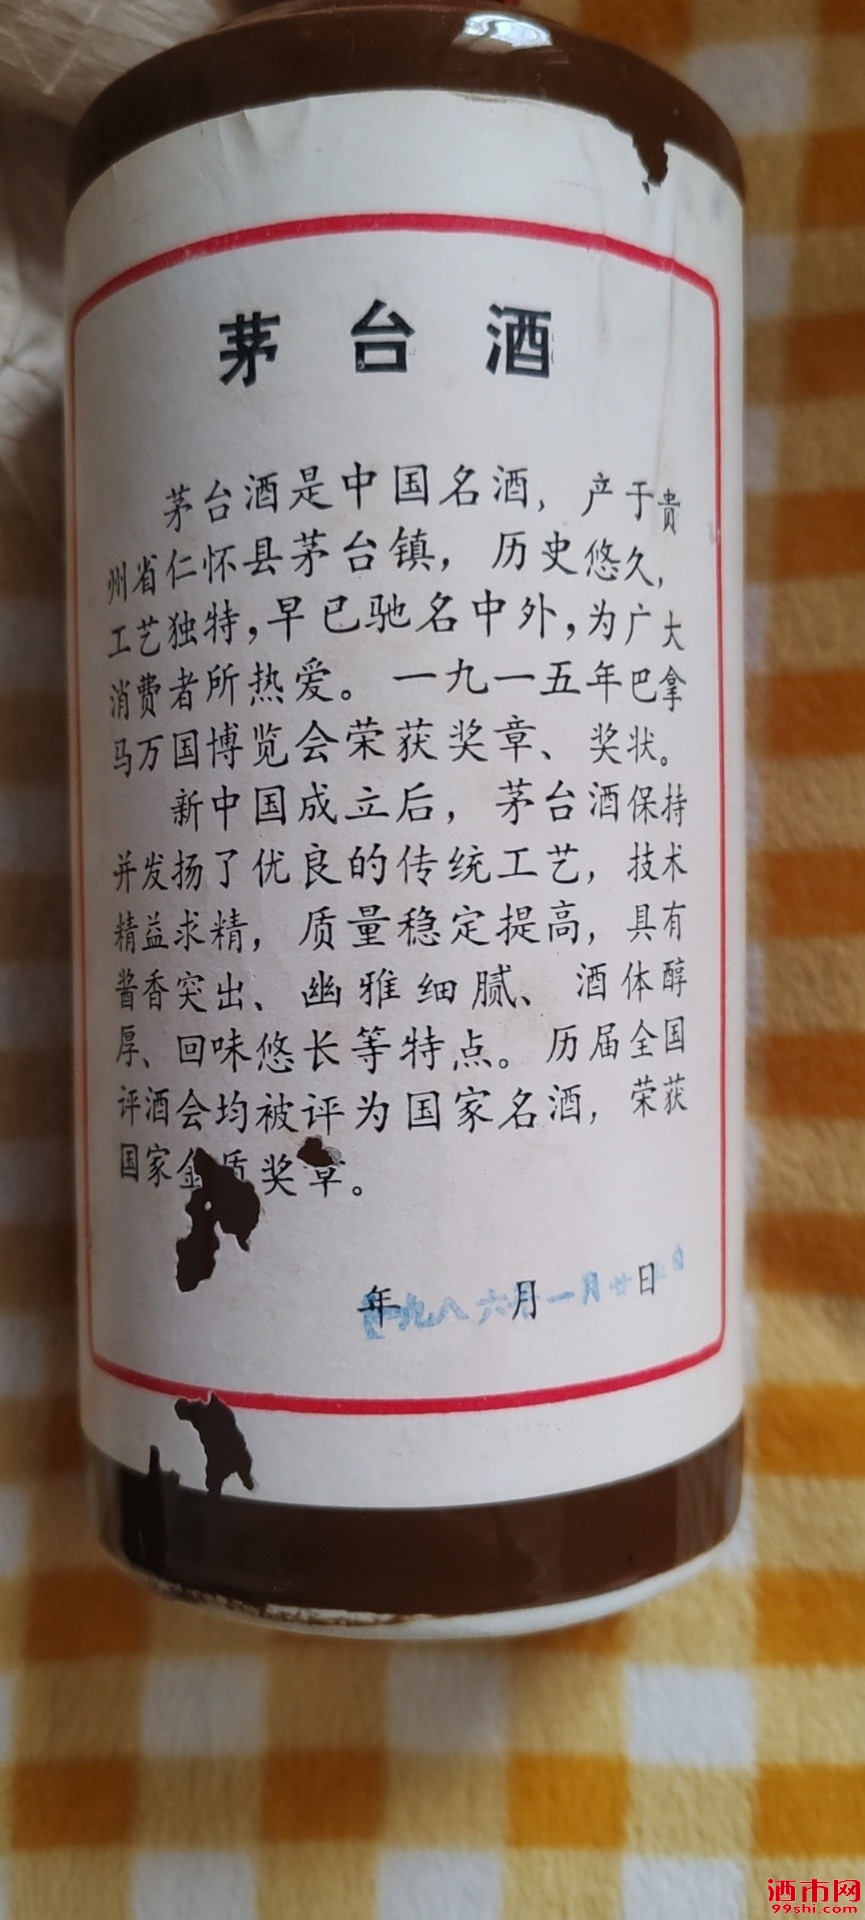 茅台酒
茅台酒是中国名酒，产于贵
州省仁怀县茅台镇，历史悠久，
工艺独特，早已驰名中外，为广大
消费者所热爱。一九一五年巴拿
马万国博览会荣获奖章、奖状。
新中国成立后，茅台酒保持
并发扬了优良的传统工艺，技术
精益求精，质量稳定提高，具有
酱香突出、幽雅细腻、酒体醇
厚、回味悠长等特点。历届全国
评酒会均被评为国家名酒，荣获
国家金质奖章。
年 月 日
九八六 一月廿 日
酒市网
99shi.com